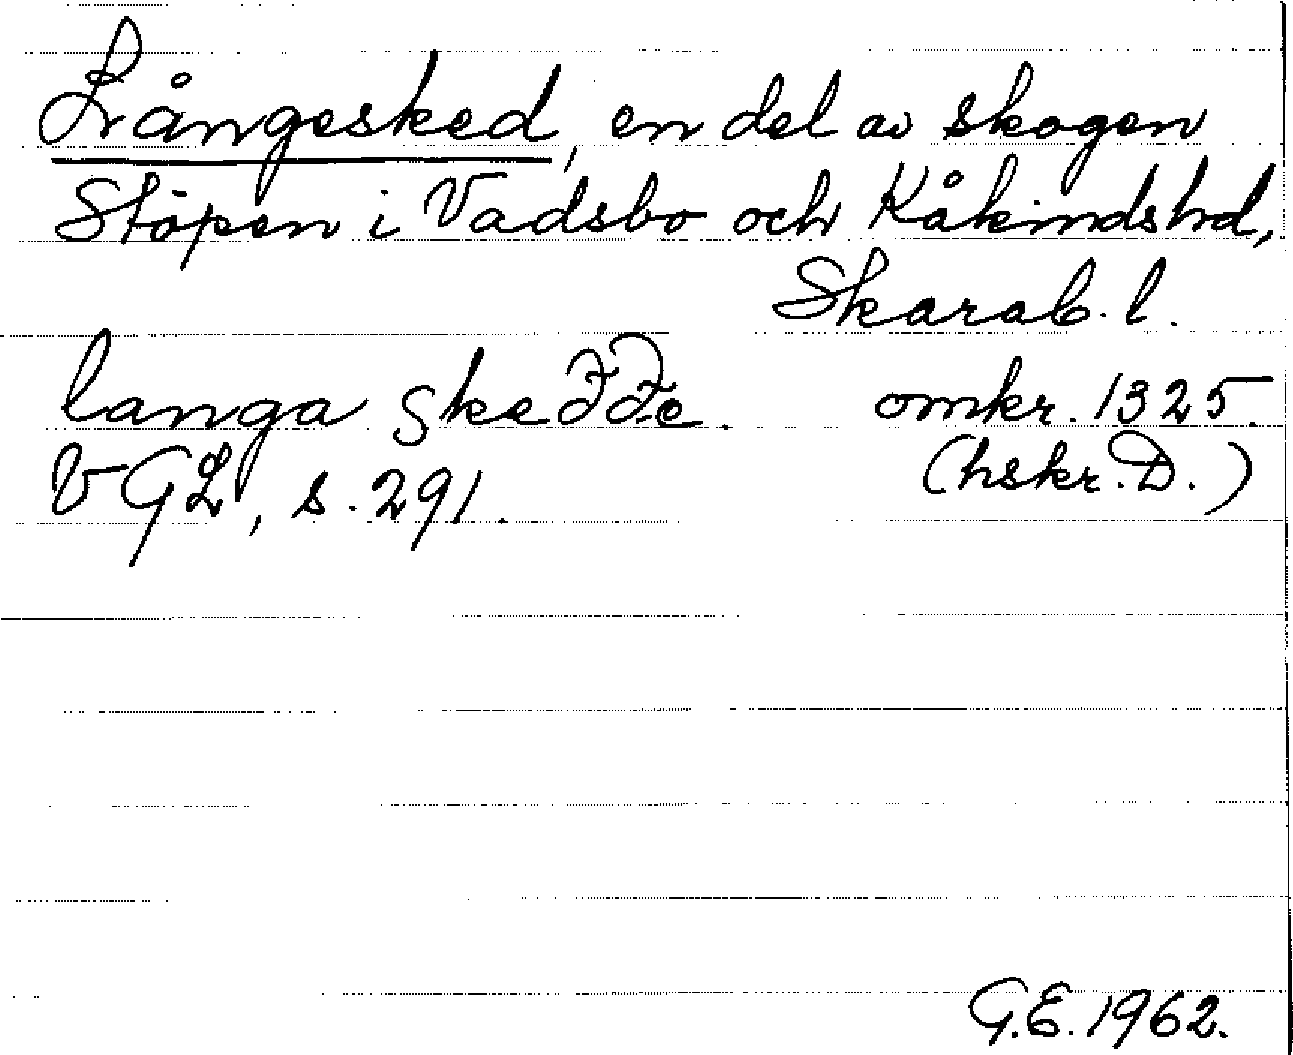 Långesked, en del av skogen
Stöpen i Vadsbo och Kåkindshd,
Skarab. l.
langa skeððe. omkr. 1325.
VGL, s. 291. (hskr. D.)
G.E. 1962.